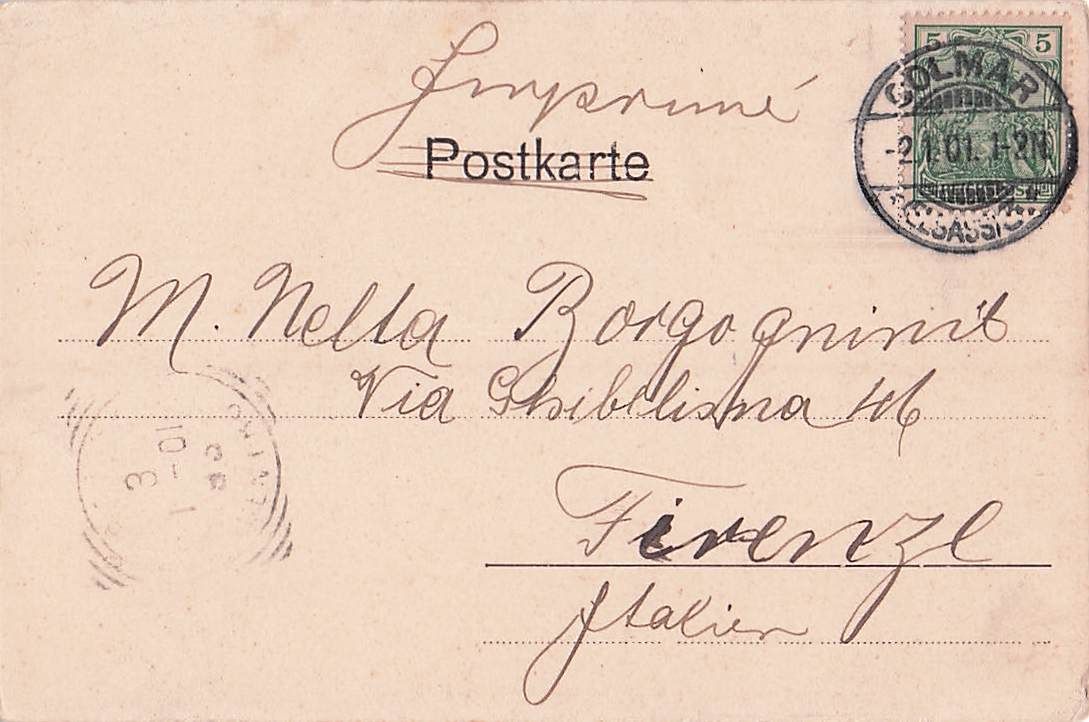 5 5
COLMAR
-2.1.01. 1-2N
(ELSASS)
Imprimé
Postkarte
M. Nelta Borgognini
Via Ghibellina 46
3
1-01
Firenze
Italien